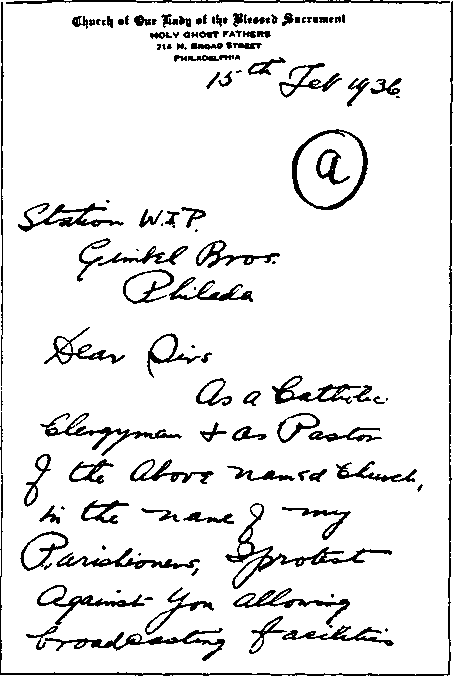 Church of Our Lady of the Blessed Sacrament
HOLY GHOST FATHERS
714 N. BROAD STREET
PHILADELPHIA
15th Feb 1936.
a
Station W.I.P.
Gimbel Bros.
Philada
Dear Sirs
As a Catholic
Clergyman & as Pastor
of the above named church,
in the name of my
Parishioners, I protest
against you allowing
broadcasting facilities